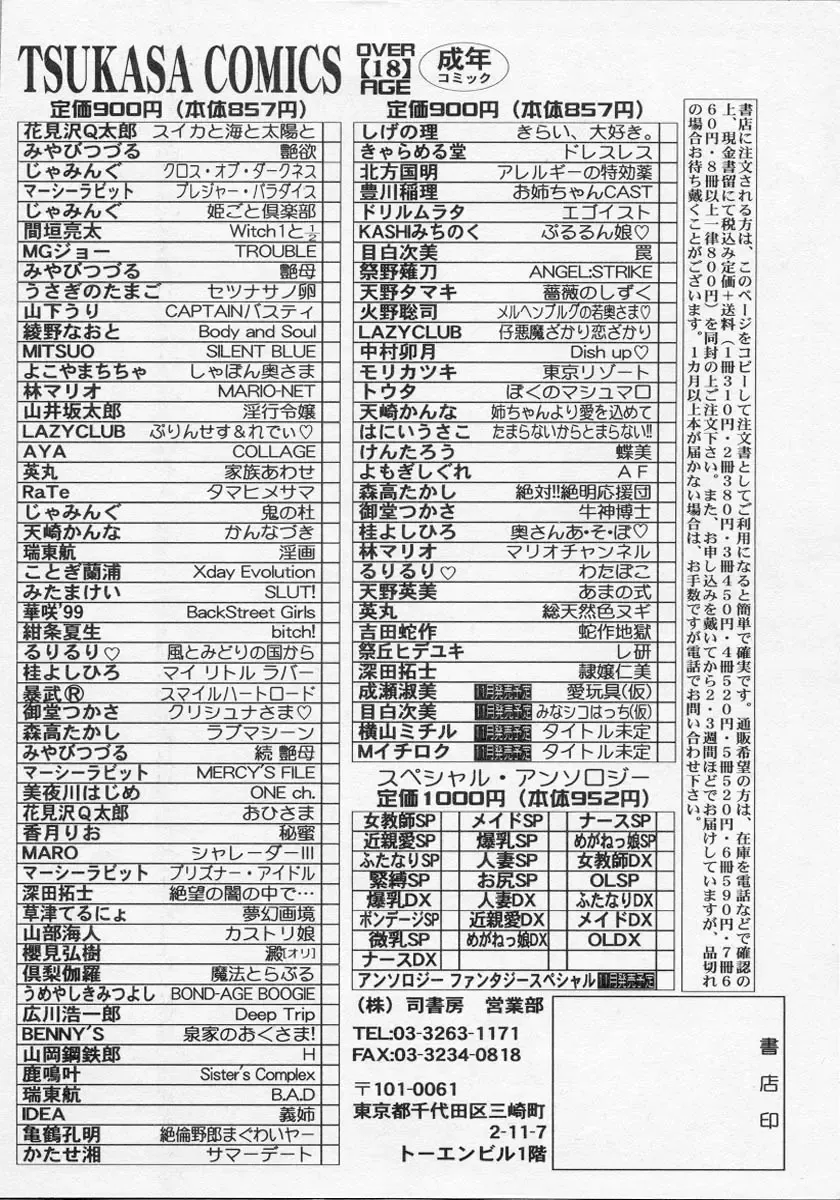 TSUKASA COMICS
OVER
【18】
AGE
成年
コミック
定価900円（本体857円）
花見沢Q太郎 スイカと海と太陽と
みやびつづる 艶欲
じゃみんぐ クロス・オブ・ダークネス
マーシーラビット プレジャー・パラダイス
じゃみんぐ 姫ごと倶楽部
間垣亮太 Witch1と½
MGジョー TROUBLE
みやびつづる 艶母
うさぎのたまご セツナサノ卵
山下うり CAPTAINバスティ
綾野なおと Body and Soul
MITSUO SILENT BLUE
よこやまちちゃ しゃぼん奥さま
林マリオ MARIO-NET
山井坂太郎 淫行令嬢
LAZYCLUB ぷりんせす&れでぃ♡
AYA COLLAGE
英丸 家族あわせ
RaTe タマヒメサマ
じゃみんぐ 鬼の杜
天崎かんな かんなづき
瑞東航 淫画
ことぎ蘭浦 Xday Evolution
みたまけい SLUT!
華咲'99 BackStreet Girls
紺条夏生 bitch!
るりるり♡ 風とみどりの国から
桂よしひろ マイ リトル ラバー
暴武Ⓡ スマイルハートロード
御堂つかさ クリシュナさま♡
森高たかし ラブマシーン
みやびつづる 続 艶母
マーシーラビット MERCY'S FILE
美夜川はじめ ONE ch.
花見沢Q太郎 おひさま
香月りお 秘蜜
MARO シャレーダーIII
マーシーラビット プリズナー・アイドル
深田拓士 絶望の闇の中で…
草津てるにょ 夢幻画境
山部海人 カストリ娘
櫻見弘樹 澱[オリ]
倶梨伽羅 魔法とらぶる
うめやしきみつよし BOND-AGE BOOGIE
広川浩一郎 Deep Trip
BENNY'S 泉家のおくさま!
山岡鋼鉄郎 H
鹿鳴叶 Sister's Complex
瑞東航 B.A.D
IDEA 義姉
亀鶴孔明 絶倫野郎まぐわいヤー
かたせ湘 サマーデート
定価900円（本体857円）
しげの理 きらい、大好き。
きゃらめる堂 ドレスレス
北方国明 アレルギーの特効薬
豊川稲理 お姉ちゃんCAST
ドリルムラタ エゴイスト
KASHIみちのく ぷるるん娘♡
目白次美 罠
祭野薙刀 ANGEL:STRIKE
天野タマキ 薔薇のしずく
火野聡司 メルヘンブルグの若奥さま♡
LAZYCLUB 仔悪魔ざかり恋ざかり
中村卯月 Dish up♡
モリカツキ 東京リゾート
トウタ ぼくのマシュマロ
天崎かんな 姉ちゃんより愛を込めて
はにいうさこ たまらないからとまらない!!
けんたろう 蝶美
よもぎしぐれ AF
森高たかし 絶対!!絶明応援団
御堂つかさ 牛神博士
桂よしひろ 奥さんあ・そ・ぼ♡
林マリオ マリオチャンネル
るりるり♡ わたぼこ
天野英美 あまの式
英丸 総天然色ヌギ
吉田蛇作 蛇作地獄
祭丘ヒデユキ レ研
深田拓士 隷嬢仁美
成瀬淑美 11月発売予定 愛玩具(仮)
目白次美 11月発売予定 みなシコはっち(仮)
横山ミチル 11月発売予定 タイトル未定
Mイチロク 11月発売予定 タイトル未定
スペシャル・アンソロジー
定価1000円（本体952円）
女教師SP メイドSP ナースSP
近親愛SP 爆乳SP めがねっ娘SP
ふたなりSP 人妻SP 女教師DX
緊縛SP お尻SP OLSP
爆乳DX 人妻DX ふたなりDX
ボンデージSP 近親愛DX メイドDX
微乳SP めがねっ娘DX OLDX
ナースDX
アンソロジー ファンタジースペシャル 11月発売予定
（株）司書房 営業部
TEL:03-3263-1171
FAX:03-3234-0818
〒101-0061
東京都千代田区三崎町
2-11-7
トーエンビル1階
書店印
書店に注文される方は、このページをコピーして注文書としてご利用になると簡単で確実です。通販希望の方は、在庫を電話などで確認の
上、現金書留にて税込み定価＋送料（1冊310円・2冊380円・3冊450円・4冊520円・5冊520円・6冊590円・7冊6
60円・8冊以上一律800円）を同封の上ご注文下さい。また、お申し込みを戴いてから2・3週間ほどでお届けしていますが、品切れ
の場合お待ち戴くことがございます。1カ月以上本が届かない場合は、お手数ですが電話でお問い合わせ下さい。